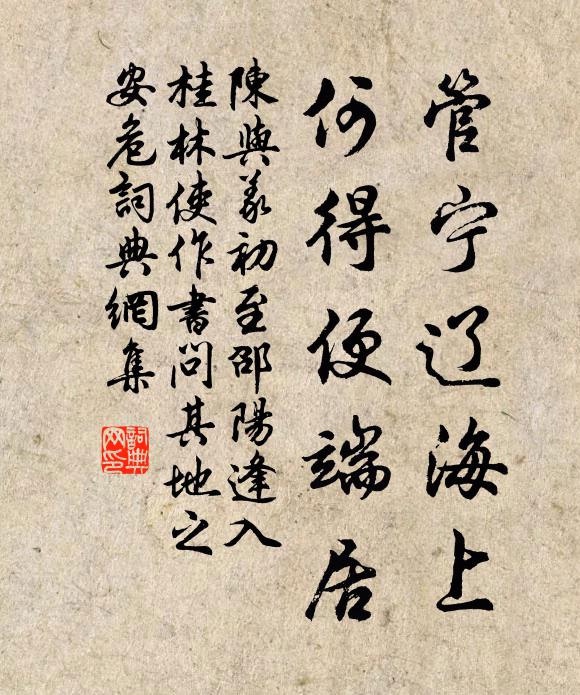 管宁辽海上
何得便端居
陳與義初至邵陽逢入
桂林使作書問其地之
安危詞典網集
詞典
网印